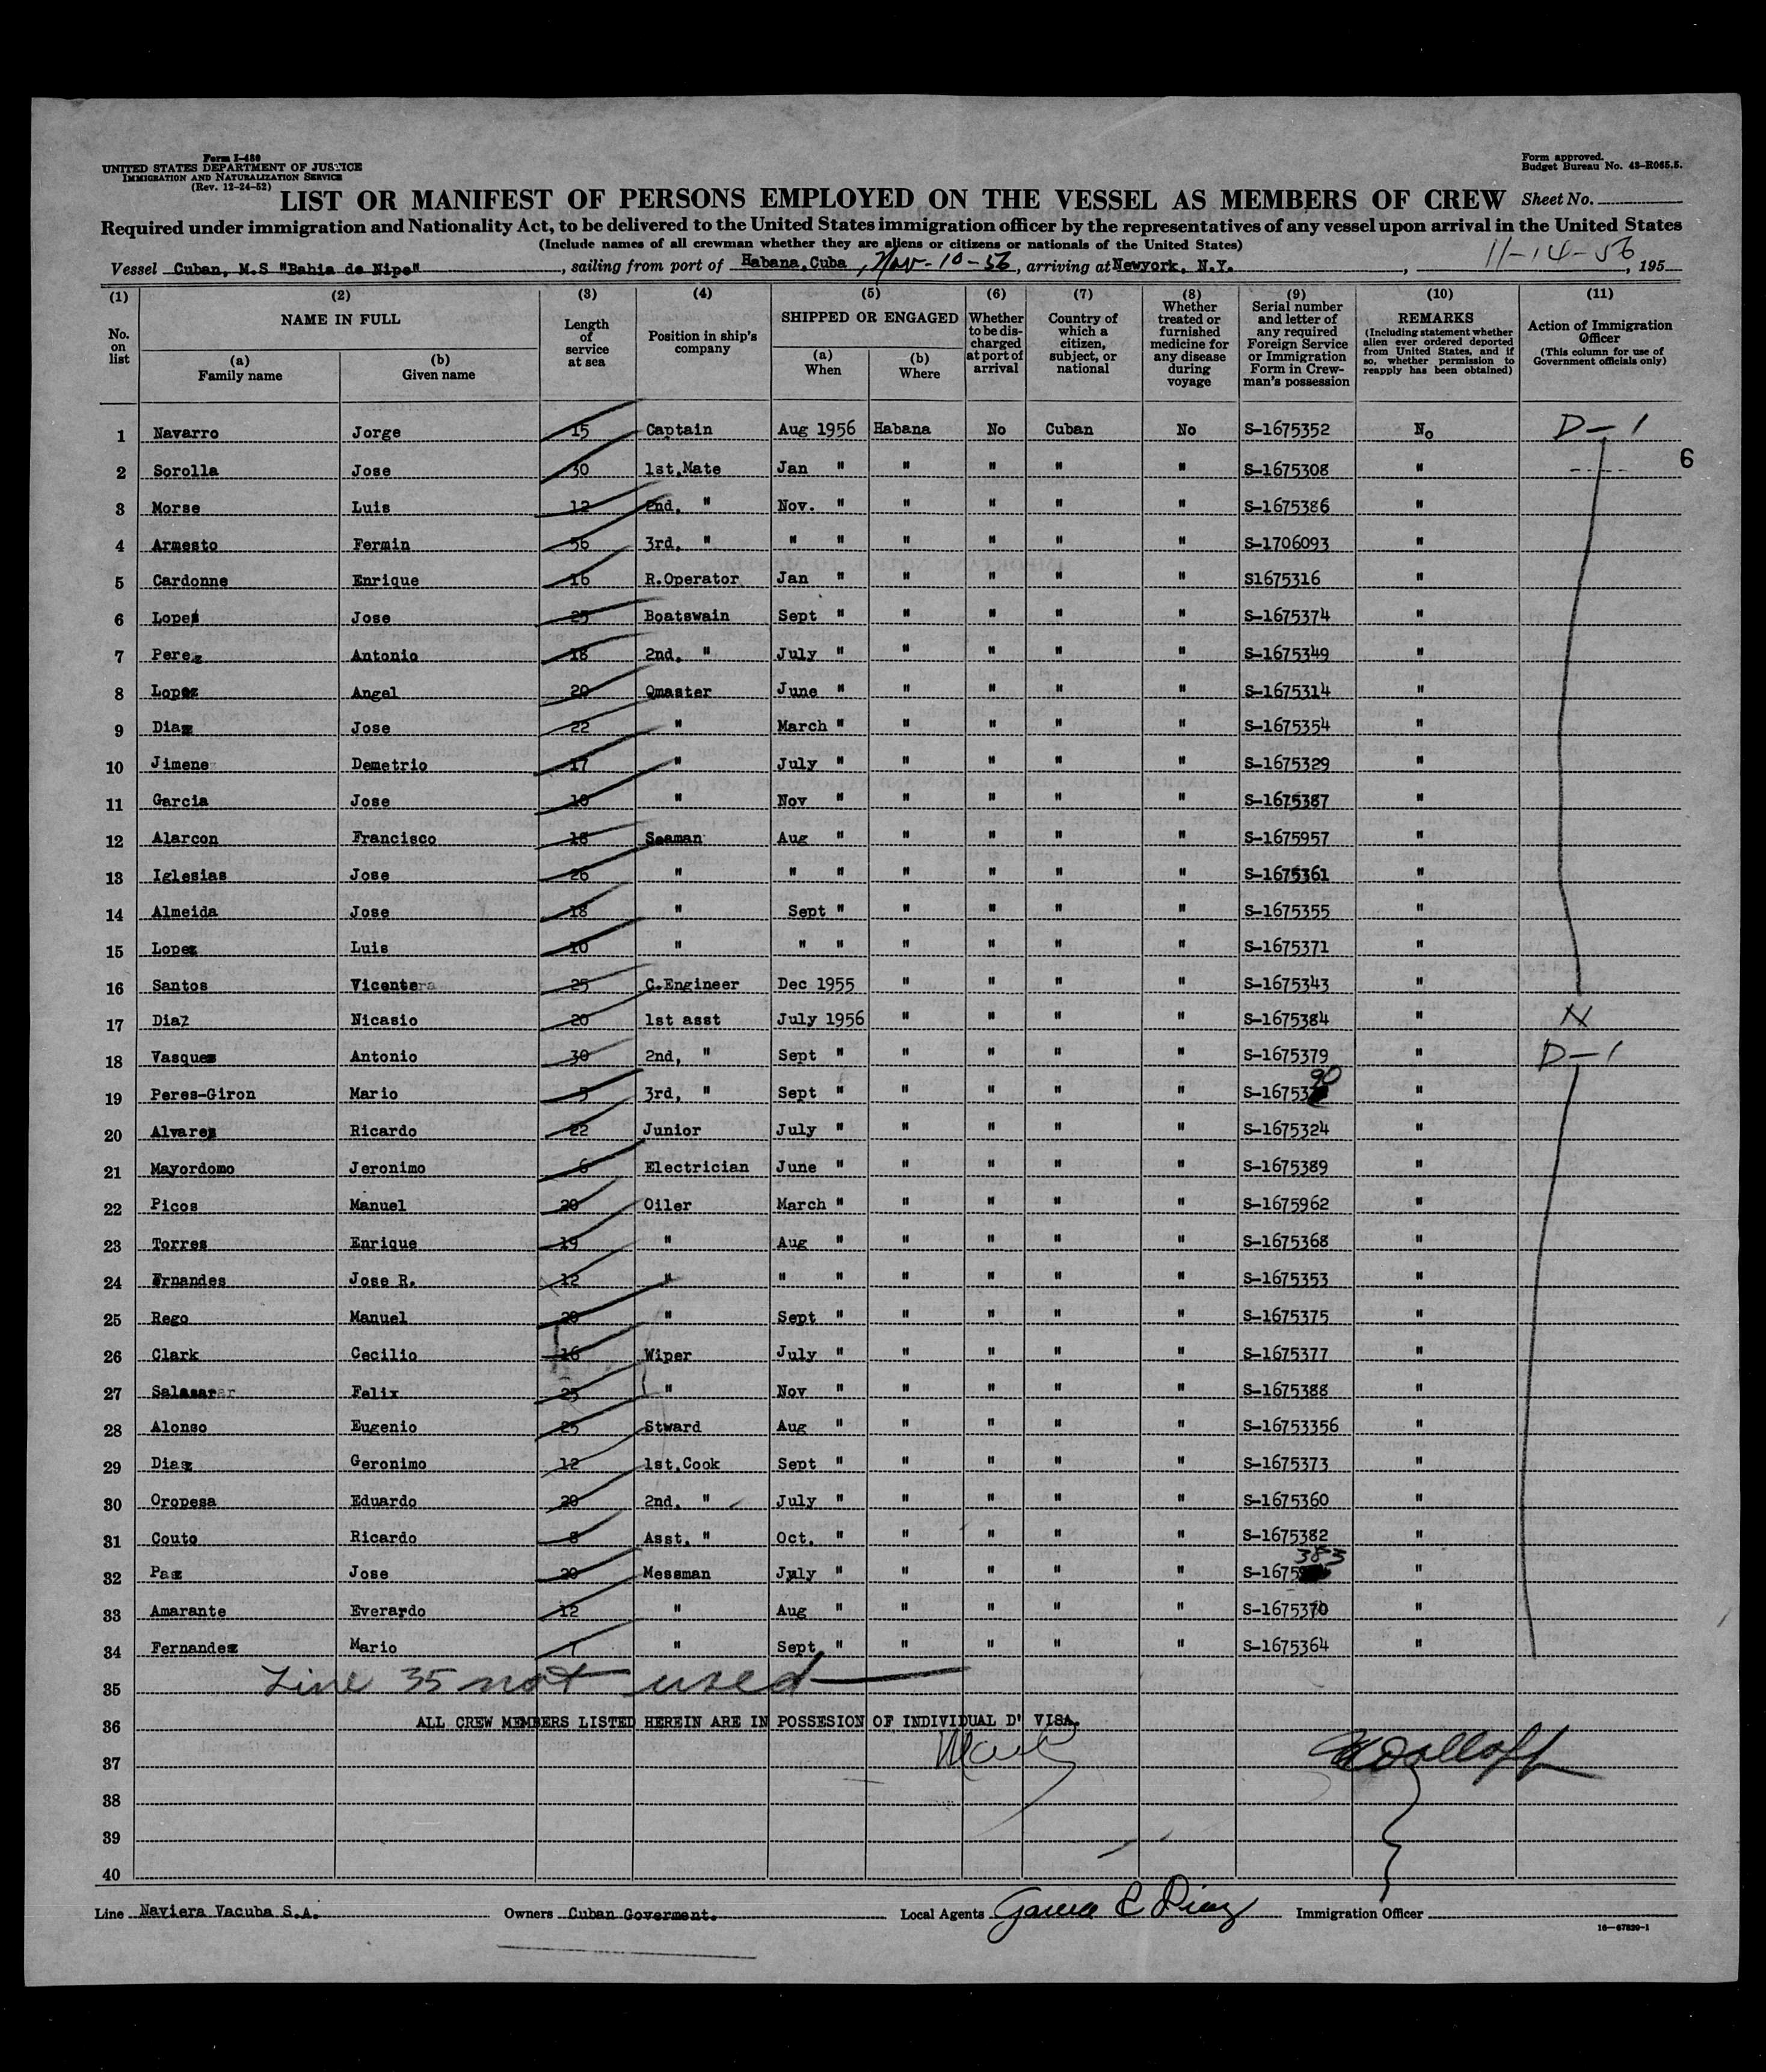 Form I-480
UNITED STATES DEPARTMENT OF JUSTICE
IMMIGRATION AND NATURALIZATION SERVICE
(Rev. 12-24-52)
Form approved.
Budget Bureau No. 43-R065.5.
LIST OR MANIFEST OF PERSONS EMPLOYED ON THE VESSEL AS MEMBERS OF CREW Sheet No.
Required under immigration and Nationality Act, to be delivered to the United States immigration officer by the representatives of any vessel upon arrival in the United States
(Include names of all crewman whether they are aliens or citizens or nationals of the United States)
Vessel Cuban, M.S "Bahia de Nipe", sailing from port of Habana, Cuba, Nov-10-56, arriving at Newyork, N.Y., 11-14-56, 195
(1) No. on list
(2) NAME IN FULL (a) Family name (b) Given name
(3) Length of service at sea
(4) Position in ship's company
(5) SHIPPED OR ENGAGED (a) When (b) Where
(6) Whether to be discharged at port of arrival
(7) Country of which a citizen, subject, or national
(8) Whether treated or furnished medicine for any disease during voyage
(9) Serial number and letter of any required Foreign Service or Immigration Form in Crewman's possession
(10) REMARKS (Including statement whether alien ever ordered deported from United States, and if so, whether permission to reapply has been obtained)
(11) Action of Immigration Officer (This column for use of Government officials only)
1 Navarro Jorge 15 Captain Aug 1956 Habana No Cuban No S-1675352 No D-1
6
2 Sorolla Jose 30 1st.Mate Jan " " " " " S-1675308 "
3 Morse Luis 12 2nd. " Nov. " " " " " S-1675386 "
4 Armesto Fermin 36 3rd. " " " " " " " S-1706093 "
5 Cardonne Enrique 16 R.Operator Jan " " " " " S1675316 "
6 Lopez Jose 25 Boatswain Sept " " " " " S-1675374 "
7 Perez Antonio 18 2nd. " July " " " " " S-1675349 "
8 Lopez Angel 20 Qmaster June " " " " " S-1675314 "
9 Diaz Jose 22 " March " " " " " S-1675354 "
10 Jimene Demetrio 17 " July " " " " " S-1675329 "
11 Garcia Jose 10 " Nov " " " " " S-1675387 "
12 Alarcon Francisco 18 Seaman Aug " " " " " S-1675957 "
13 Iglesias Jose 26 " " " " " " " S-1675361 "
14 Almeida Jose 18 " Sept " " " " " S-1675355 "
15 Lopez Luis 10 " " " " " " " S-1675371 "
16 Santos Vicente 25 C.Engineer Dec 1955 " " " " S-1675343 "
17 Diaz Nicasio 20 1st asst July 1956 " " " " S-1675384 " N
18 Vasques Antonio 30 2nd, " Sept " " " " " S-1675379 " D-1
19 Peres-Giron Mario 5 3rd, " Sept " " " " " S-1675390 "
20 Alvarez Ricardo 22 Junior July " " " " " S-1675324 "
21 Mayordomo Jeronimo 6 Electrician June " " " " " S-1675389 "
22 Picos Manuel 20 Oiler March " " " " " S-1675962 "
23 Torres Enrique 19 " Aug " " " " " S-1675368 "
24 Frnandes Jose R. 12 " " " " " " " S-1675353 "
25 Rego Manuel 20 " Sept " " " " " S-1675375 "
26 Clark Cecilio 16 Wiper July " " " " " S-1675377 "
27 Salasar Felix 23 " Nov " " " " " S-1675388 "
28 Alonso Eugenio 25 Stward Aug " " " " " S-16753356 "
29 Diaz Geronimo 12 1st.Cook Sept " " " " " S-1675373 "
30 Oropesa Eduardo 20 2nd. " July " " " " " S-1675360 "
31 Couto Ricardo 8 Asst. " Oct. " " " " " S-1675382 "
32 Paz Jose 20 Messman July " " " " " S-1675383 "
33 Amarante Everardo 12 " Aug " " " " " S-1675370 "
34 Fernandez Mario 7 " Sept " " " " " S-1675364 "
35 Line 35 not used
36 ALL CREW MEMBERS LISTED HEREIN ARE IN POSSESION OF INDIVIDUAL D' VISA.
37
38
39
40
Line Naviera Vacuba S.A. Owners Cuban Goverment. Local Agents Garcia & Diaz Immigration Officer
16-67820-1